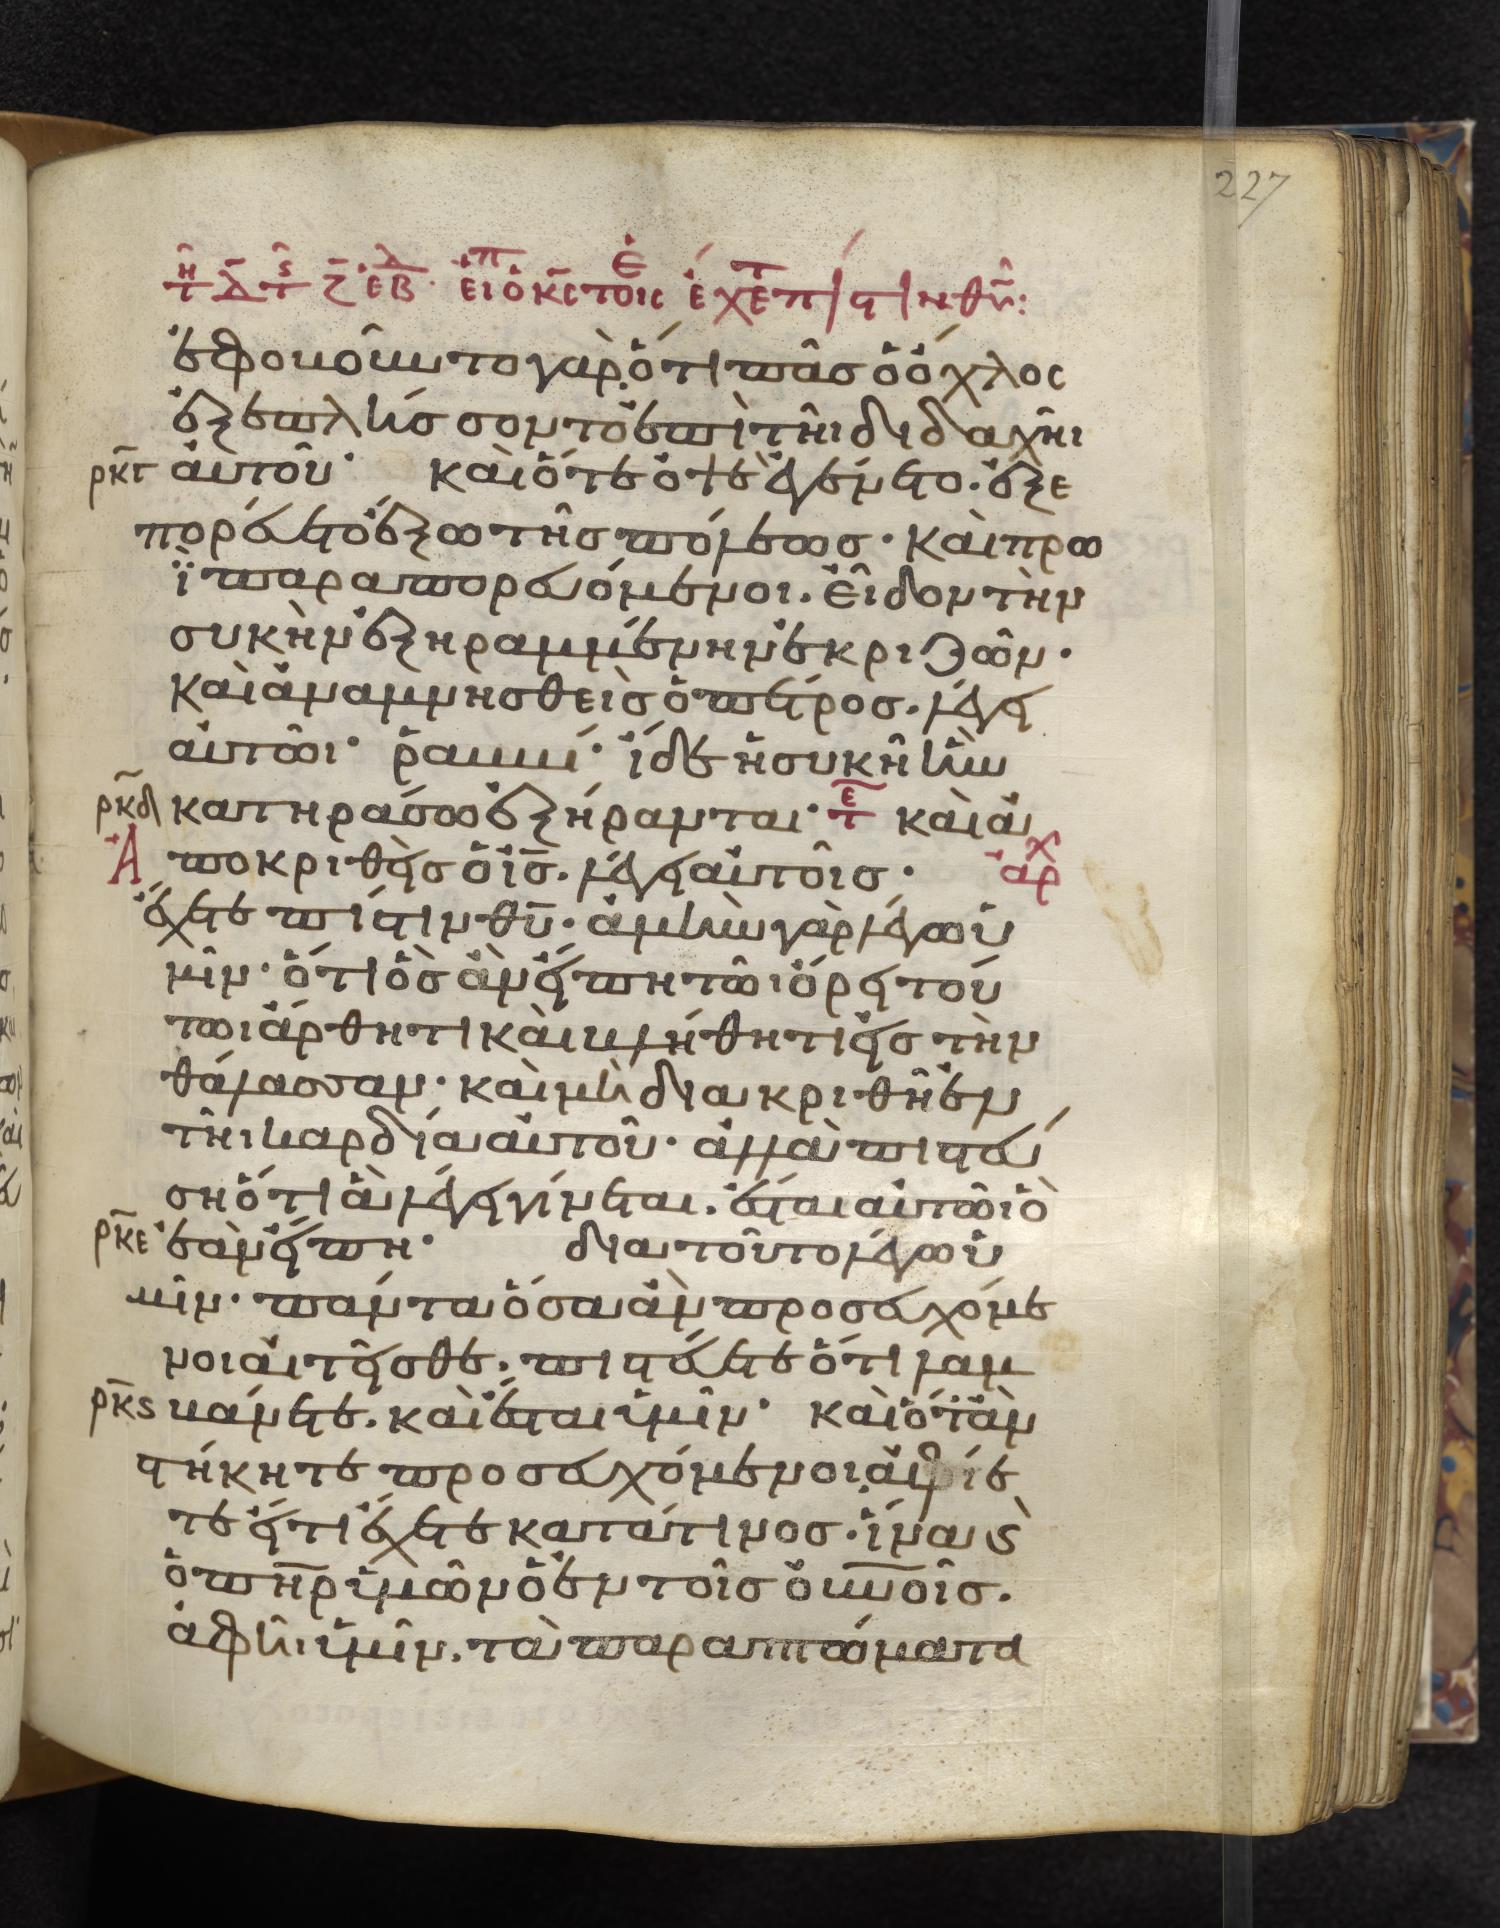 227
τη Δ τς ζ εβδ. ειπ ο κς τοις ε εχετε πιστιν θυ:
ἐφοβοῦντο γὰρ. ὅτι πᾶσ ὁ ὄχλος
ἐξεπλήσσοντο ἐπὶ τῆι διδαχῆι
ρκγ αὐτοῦ· καὶ ὅτε ὀψὲ ἐγένετο. ἐξε
πορεύετο ἔξω τῆσ πόλεωσ· καὶ πρω
ῒ παραπορευόμενοι. εἶδον τὴν
συκὴν ἐξηραμμένην ἐκ ριζῶν·
καὶ ἀναμνησθεὶσ ὁ πέτροσ. λέγει
αὐτῶι· ῥαββί· ἴδε ἡ συκῆ ἣν
ρκδ κατηράσω ἐξήρανται· τε καὶ ἀ
Ἀ ποκριθεὶσ ὁ ισ. λέγει αὐτοῖσ· αρχ
ἔχετε πίστιν θυ. ἀμὴν γὰρ λέγω ὑ
μῖν· ὅτι ὃσ ἂν εἴπη τῶι ὄρει τού
τωι ἄρθητι καὶ βλήθητι εἰσ τὴν
θάλασσαν· καὶ μὴ διακριθῆ ἐν
τῆι καρδία αὐτοῦ· ἀλλὰ πιστεύ
ση ὅτι ἃ λέγει γίνεται. ἔσται αὐτῶι ὃ
ρκε ἐὰν εἴπη· δια τοῦτο λέγω ὑ
μῖν· πάντα ὅσα ἂν προσευχόμε
νοι αἰτεῖσθε. πιστεύετε ὅτι λαμ
ρκς βάνετε. καὶ ἔσται ὑμῖν· καὶ ὅταν
στήκητε προσευχόμενοι, ἀφίε
τε εἴ τι ἔχετε κατά τινοσ. ἵνα ϗ
ὁ πηρ ὑμῶν ὁ ἐν τοῖσ οὐνοῖσ.
ἀφῆι ὑμῖν. τὰ παραπτώματα